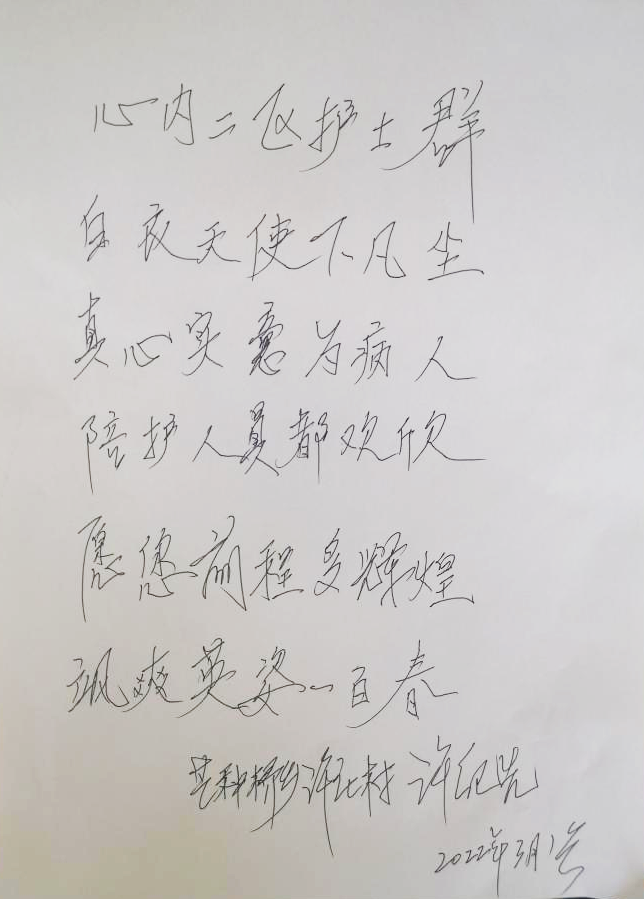 心内二区护士群
白衣天使下凡尘
真心实意为病人
陪护人员都欢欣
愿您前程多辉煌
飒爽英姿一百春
芝种桥乡许上村 许纪先
2022年3月1号